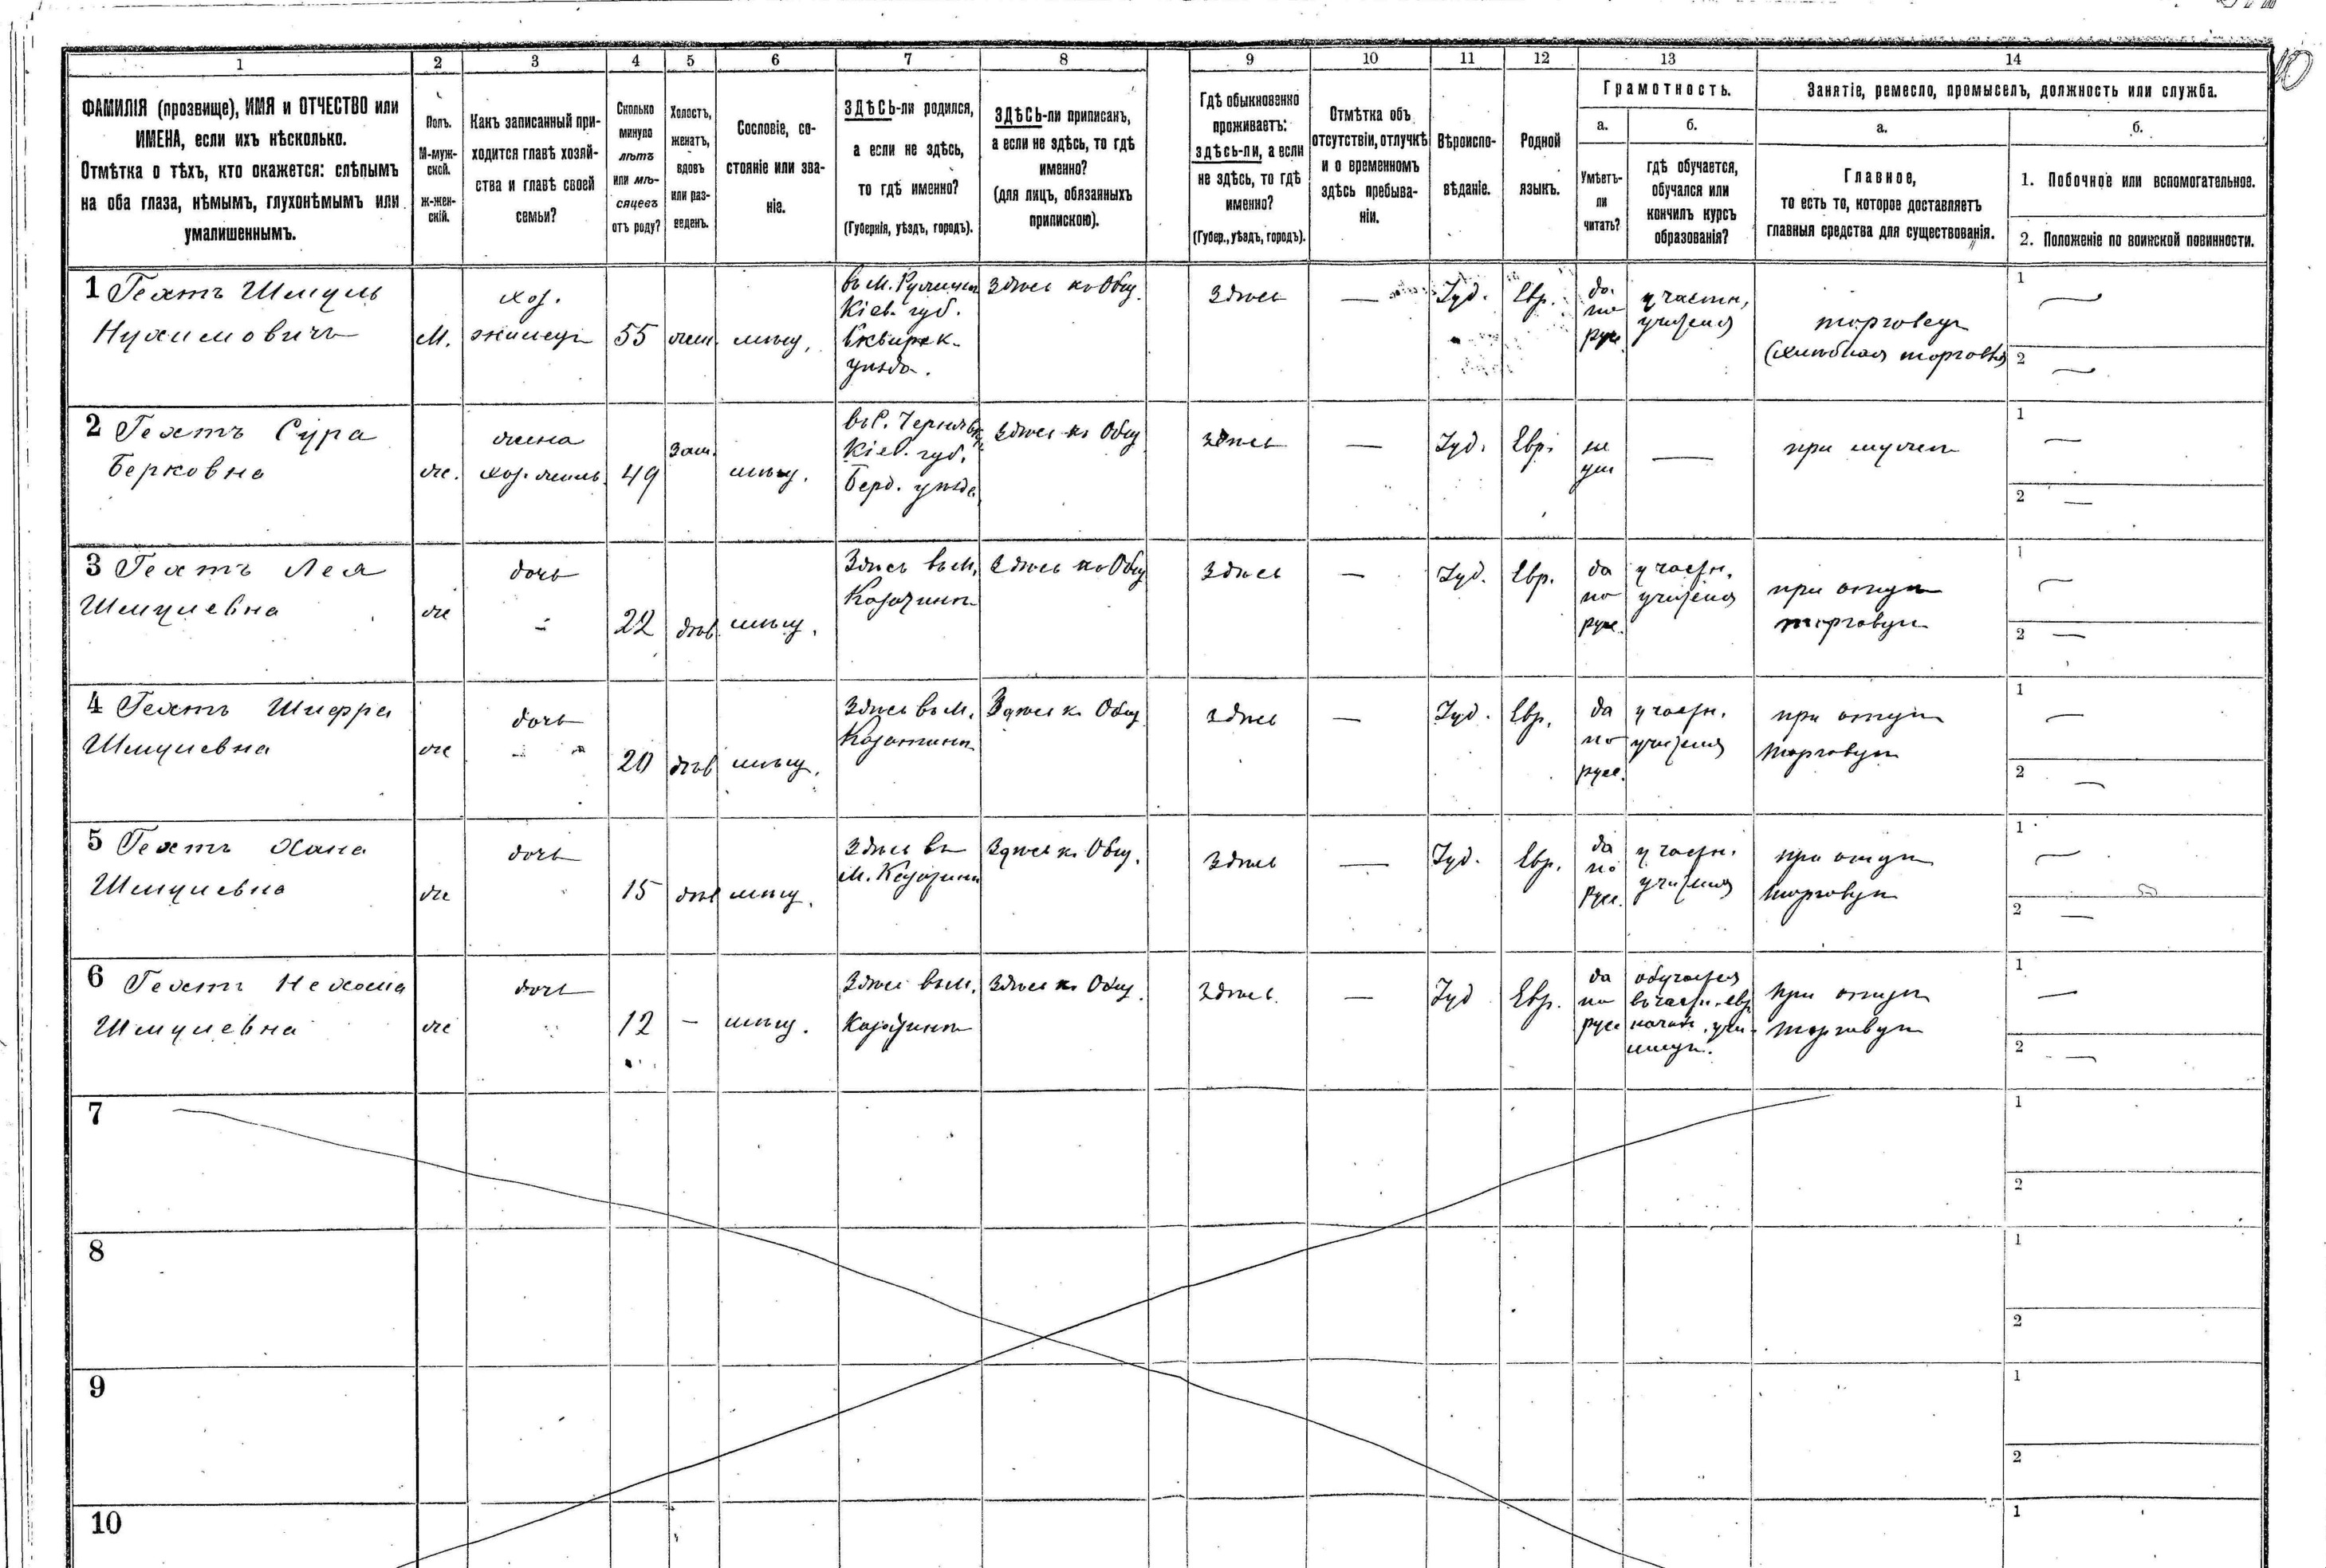 1
2
3
4
5
6
7
8
9
10
11
12
13
14
ФАМИЛІЯ (прозвище), ИМЯ и ОТЧЕСТВО или
ИМЕНА, если ихъ нѣсколько.
Отмѣтка о тѣхъ, кто окажется: слѣпымъ
на оба глаза, нѣмымъ, глухонѣмымъ или
умалишеннымъ.
Полъ.
М-муж-
ской.
ж-жен-
скій.
Какъ записанный при-
ходится главѣ хозяй-
ства и главѣ своей
семьи?
Сколько
минуло
лѣтъ
или мѣ-
сяцевъ
отъ роду?
Холостъ,
женатъ,
вдовъ
или раз-
веденъ.
Сословіе, со-
стояніе или зва-
ніе.
ЗДѢСЬ-ли родился,
а если не здѣсь,
то гдѣ именно?
(Губернія, уѣздъ, городъ).
ЗДѢСЬ-ли приписанъ,
а если не здѣсь, то гдѣ
именно?
(для лицъ, обязанныхъ
припискою).
Гдѣ обыкновенно
проживаетъ:
здѣсь-ли, а если
не здѣсь, то гдѣ
именно?
(Губер., уѣздъ, городъ).
Отмѣтка объ
отсутствіи, отлучкѣ
и о временномъ
здѣсь пребыва-
ніи.
Вѣроиспо-
вѣданіе.
Родной
языкъ.
Грамотность.
а.
Умѣетъ-
ли
читать?
б.
гдѣ обучается,
обучался или
кончилъ курсъ
образованія?
Занятіе, ремесло, промыселъ, должность или служба.
а.
Главное,
то есть то, которое доставляетъ
главныя средства для существованія.
б.
1. Побочное или вспомогательное.
2. Положеніе по воинской повинности.
1 Гехтъ Шмуль
Нухимовичъ
М.
хоз.
55
жен
мѣщ.
Кіев. губ.
Сквирск.
уѣзда.
Здѣсь къ Общ.
Здѣсь
—
Іуд.
Евр.
да
по
рус.
у частн.
учителя
торговец
(хлѣбная торговля)
1 —
2 —
2 Гехтъ Сура
Берковна
же.
жена
49
Зам.
мѣщ.
Кіев. губ.
Берд. уѣзда
Здѣсь к. Общ
здѣсь
—
Іуд.
Евр.
не
ум
—
при мужѣ
1 —
2 —
3 Гехтъ Лея
Шмулевна
же
дочь
22
дѣв
мѣщ.
Здѣсь въ м.
Козатинѣ
Здѣсь къ Общ
Здѣсь
—
Іуд.
Евр.
да
по
рус.
у частн.
учителя
при отцѣ
торговцѣ
1 —
2 —
4 Гехтъ Шифра
Шмулевна
же
дочь
20
дѣв
мѣщ.
Здѣсь въ м.
Козатинѣ
Здѣсь к. Общ
здѣсь
—
Іуд.
Евр.
да
по
русс.
у частн.
учителя
при отцѣ
торговцѣ
1 —
2 —
5 Гехтъ Хана
Шмулевна
же
дочь
15
дѣв
мѣщ.
Здѣсь въ
М. Козатинѣ
Здѣсь к. Общ.
Здѣсь
—
Іуд.
Евр.
да
по
русс.
у частн.
учителя
при отцѣ
торговцѣ
1 —
2 —
6 Гехтъ Нехома
Шмулевна
же
дочь
12
—
мѣщ.
Здѣсь въ м.
Козатинѣ
Здѣсь к. Общ.
Здѣсь.
—
Іуд
Евр.
да
по
русс
обучается
въ частн. евр
начал. учи-
лищѣ.
при отцѣ
торговцѣ
1 —
2 —
7
1
2
8
1
2
9
1
2
10
1